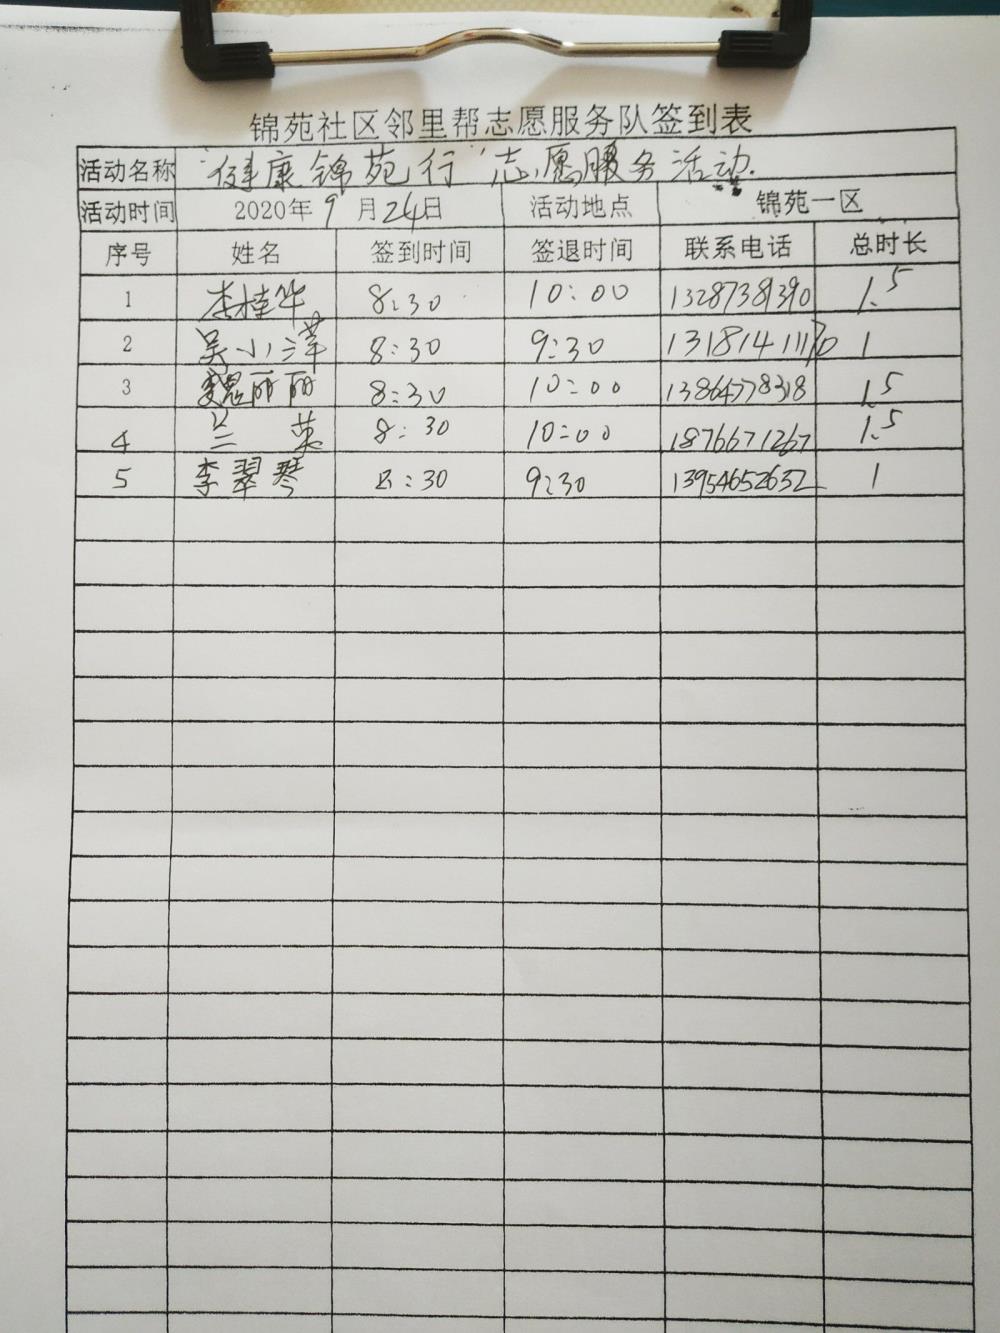 锦苑社区邻里帮志愿服务队签到表
活动名称 "健康锦苑行"志愿服务活动.
活动时间 2020年9月24日 活动地点 锦苑一区
序号 姓名 签到时间 签退时间 联系电话 总时长
1 李桂华 8:30 10:00 13287381390 1.5
2 吴小 8:30 9:30 1 
3 魏丽丽 8:30 10:00 13864778318 1.5
4 兰英 8:30 10:00 18766671267 1.5
5 李翠琴 8:30 9:30 13954652632 1